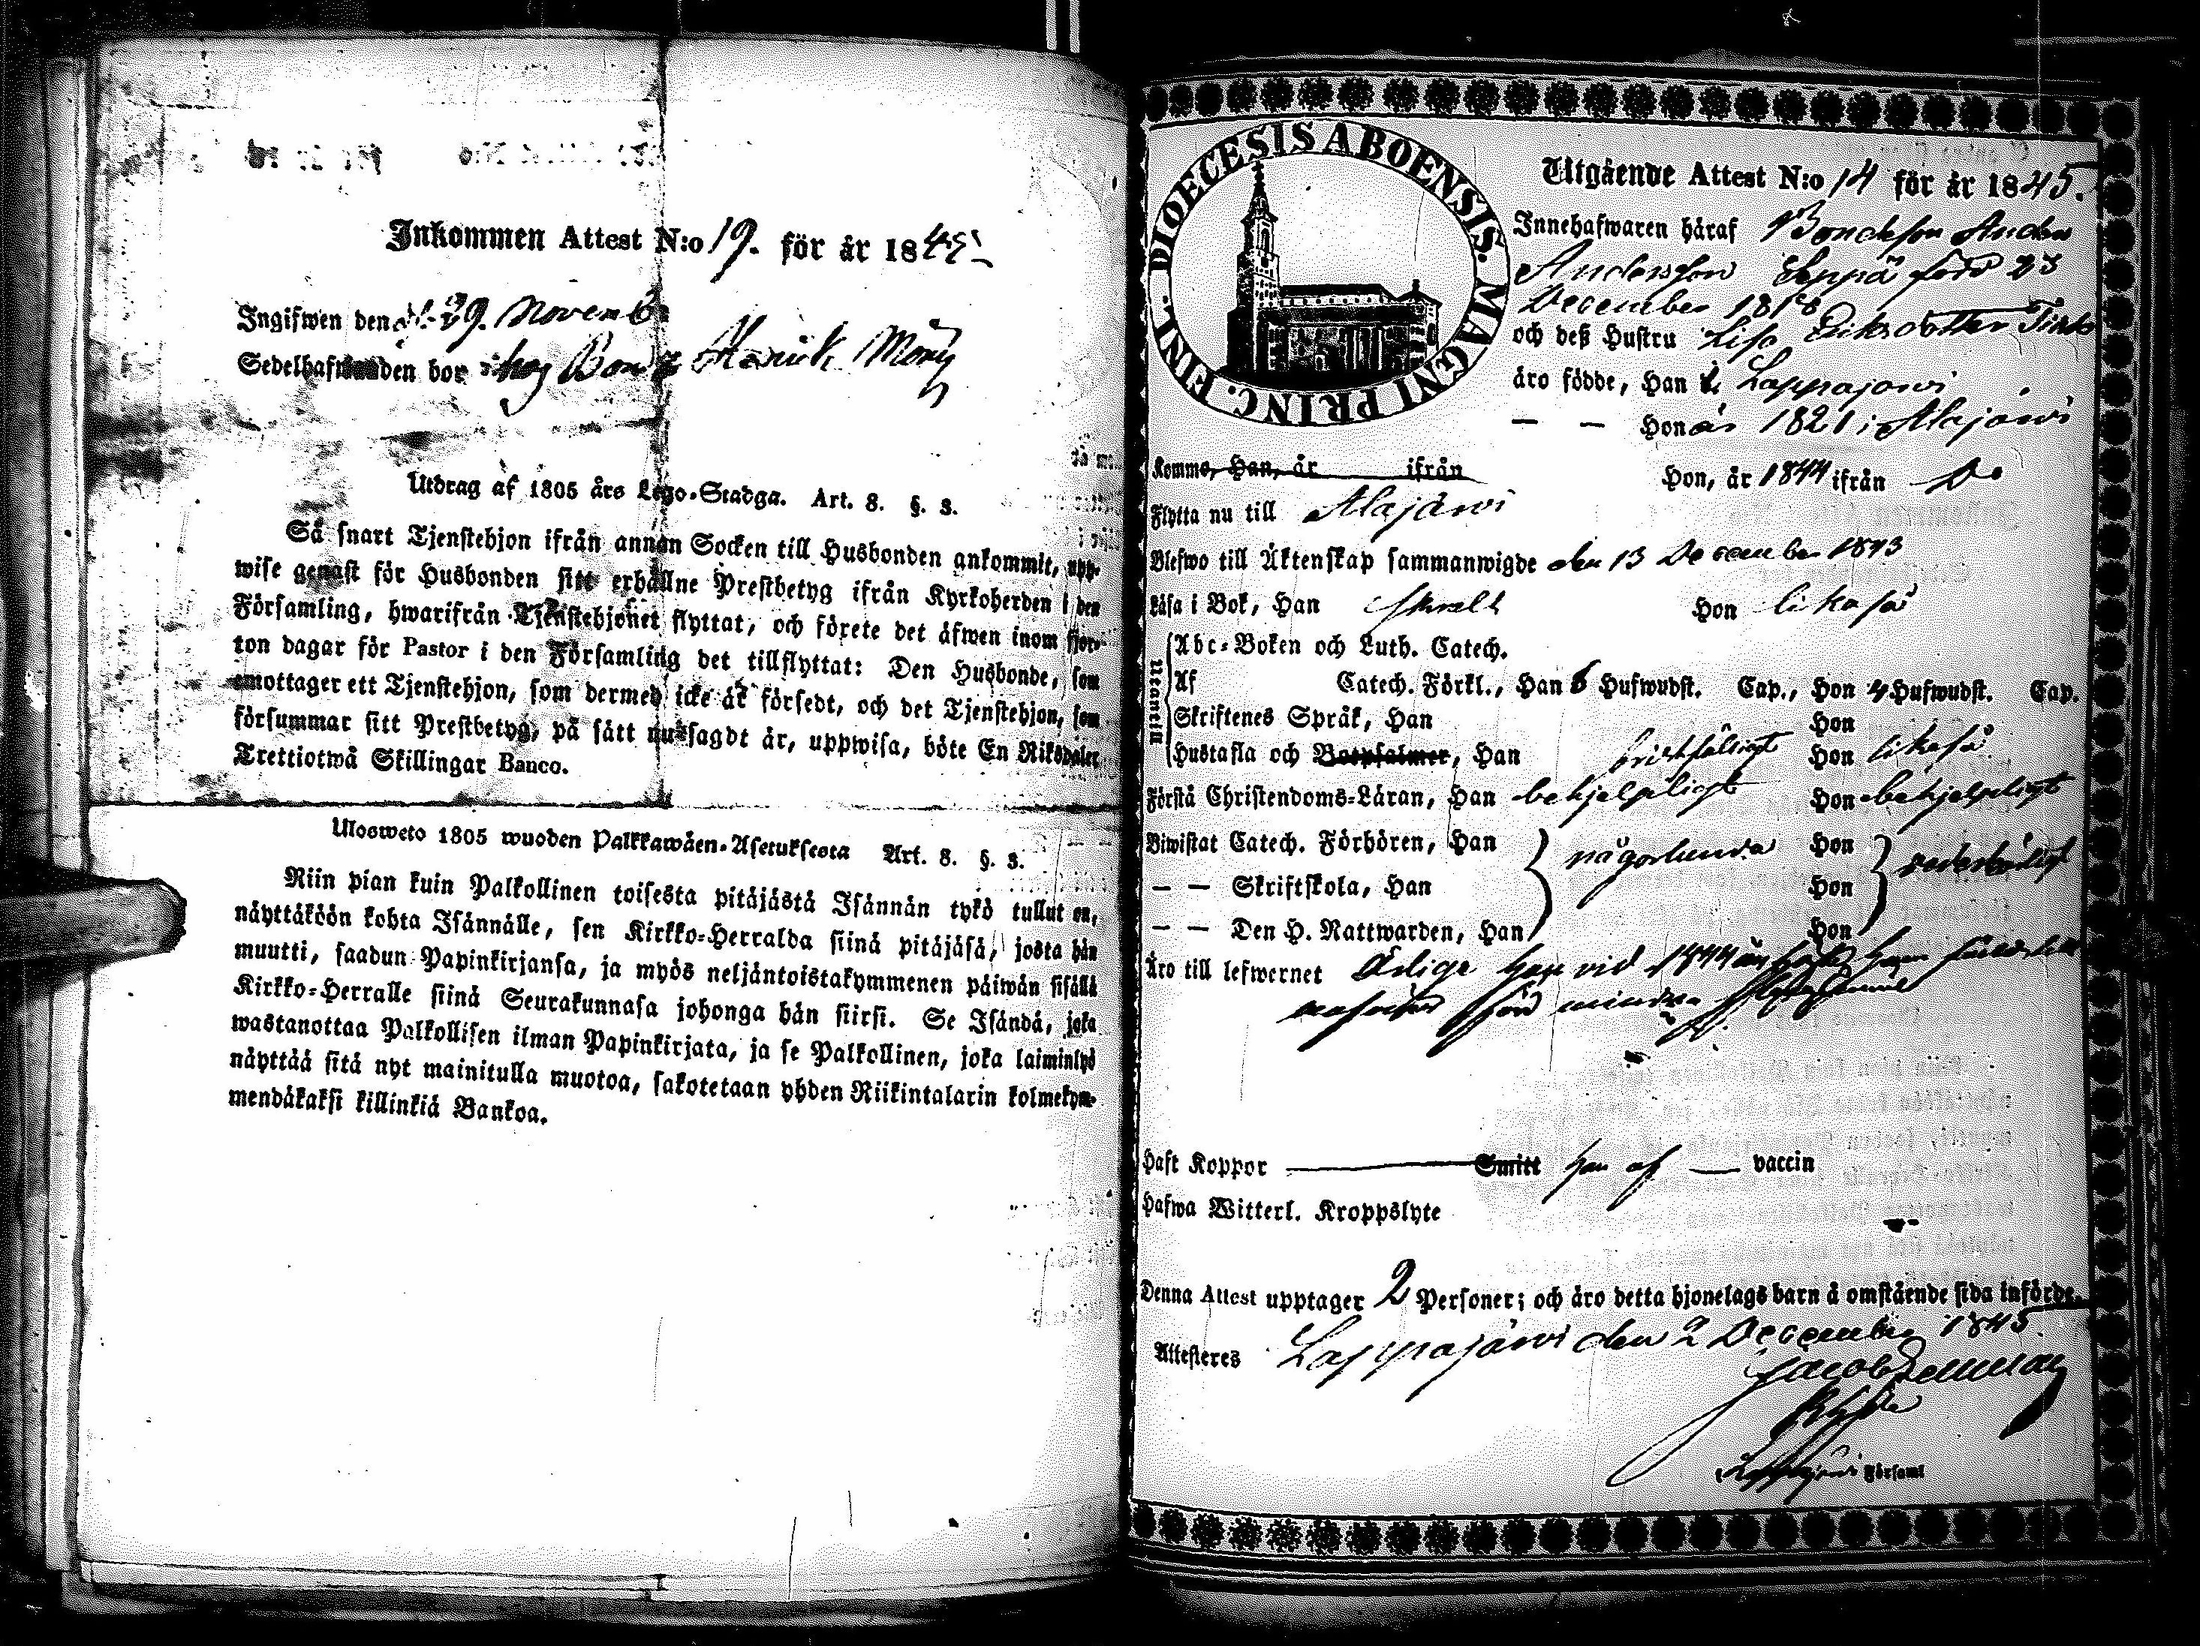 Inkommen Attest N:o 19. för år 1845
Ingifwen den 29. Novemb
Sedelhafwanden bor hos Bond Henrik
Utdrag af 1805 års Lego-Stadga. Art. 8. §. 3.
Så snart Tjenstehjon ifrån annan Socken till Husbonden ankommit, upp-
wise genast för Husbonden sitt erhållne Prestbetyg ifrån Kyrkoherden i den
Församling, hwarifrån Tjenstehjonet flyttat, och förete det äfwen inom fjor-
ton dagar för Pastor i den Församling det tillflyttat: Den Husbonde, som
emottager ett Tjenstehjon, som dermed icke är försedt, och det Tjenstehjon, som
försummar sitt Prestbetyg, på sätt nu sagdt är, uppwisa, böte En Riksdaler
Trettiotwå Skillingar Banco.
Ulosweto 1805 wuoden Palkkawäen-Asetuksesta Art. 8. §. 3.
Niin pian kuin Palkollinen toisesta pitäjästä Isännän tykö tullut on,
näyttäköön kohta Isännälle, sen Kirkko-Herralda siinä pitäjäsä, josta hän
muutti, saadun Papinkirjansa, ja myös neljäntoistakymmenen päiwän sisällä
Kirkko-Herralle siinä Seurakunnasa johonga hän siirsi. Se Isändä, joka
wastanottaa Palkollisen ilman Papinkirjata, ja se Palkollinen, joka laiminlyö
näyttää sitä nyt mainitulla muotoa, sakotetaan yhden Riikintalarin kolmekym-
mendäkaksi killinkiä Bankoa.
DIOECESIS ABOENSIS. MAGNI PRINC. FINL.
Utgående Attest N:o 14 för år 1845.
Innehafwaren häraf Bondeson Anders
Andersson Seppä född 23
December 1818
och deß Hustru Lisa Eriksdotter
äro födde, Han i Lappajärwi
— — Hon år 1821 i Alajärwi
Komme, Han, år ifrån Hon, år 1844 ifrån Do
Flytta nu till Alajärwi
Blefwo till Äktenskap sammanwigde den 13 December 1843
Läsa i Bok, Han Hon likaså
Utantill
Abc-Boken och Luth. Catech.
Af Catech. Förkl., Han 6 Hufwudst. Cap., Hon 4 Hufwudst. Cap.
Skriftenes Språk, Han Hon
Hustafla och Botpsalmer, Han bristfälligt Hon likaså
Förstå Christendoms-Läran, Han behjelpligt Hon behjelpligt
Biwistat Catech. Förhören, Han någorlunda Hon
— — Skriftskola, Han Hon
— — Den H. Nattwarden, Han Hon
Äro till lefwernet Ärlige han vid 1844 års
för mindre
Haft Koppor Smitt han af — vaccin
Hafwa Witterl. Kroppslyte
Denna Attest upptager 2 Personer; och äro detta hjonelags barn å omstående sida införde.
Attesteres Lappajärwi den 2 December 1845.
Lappajärwi Församl